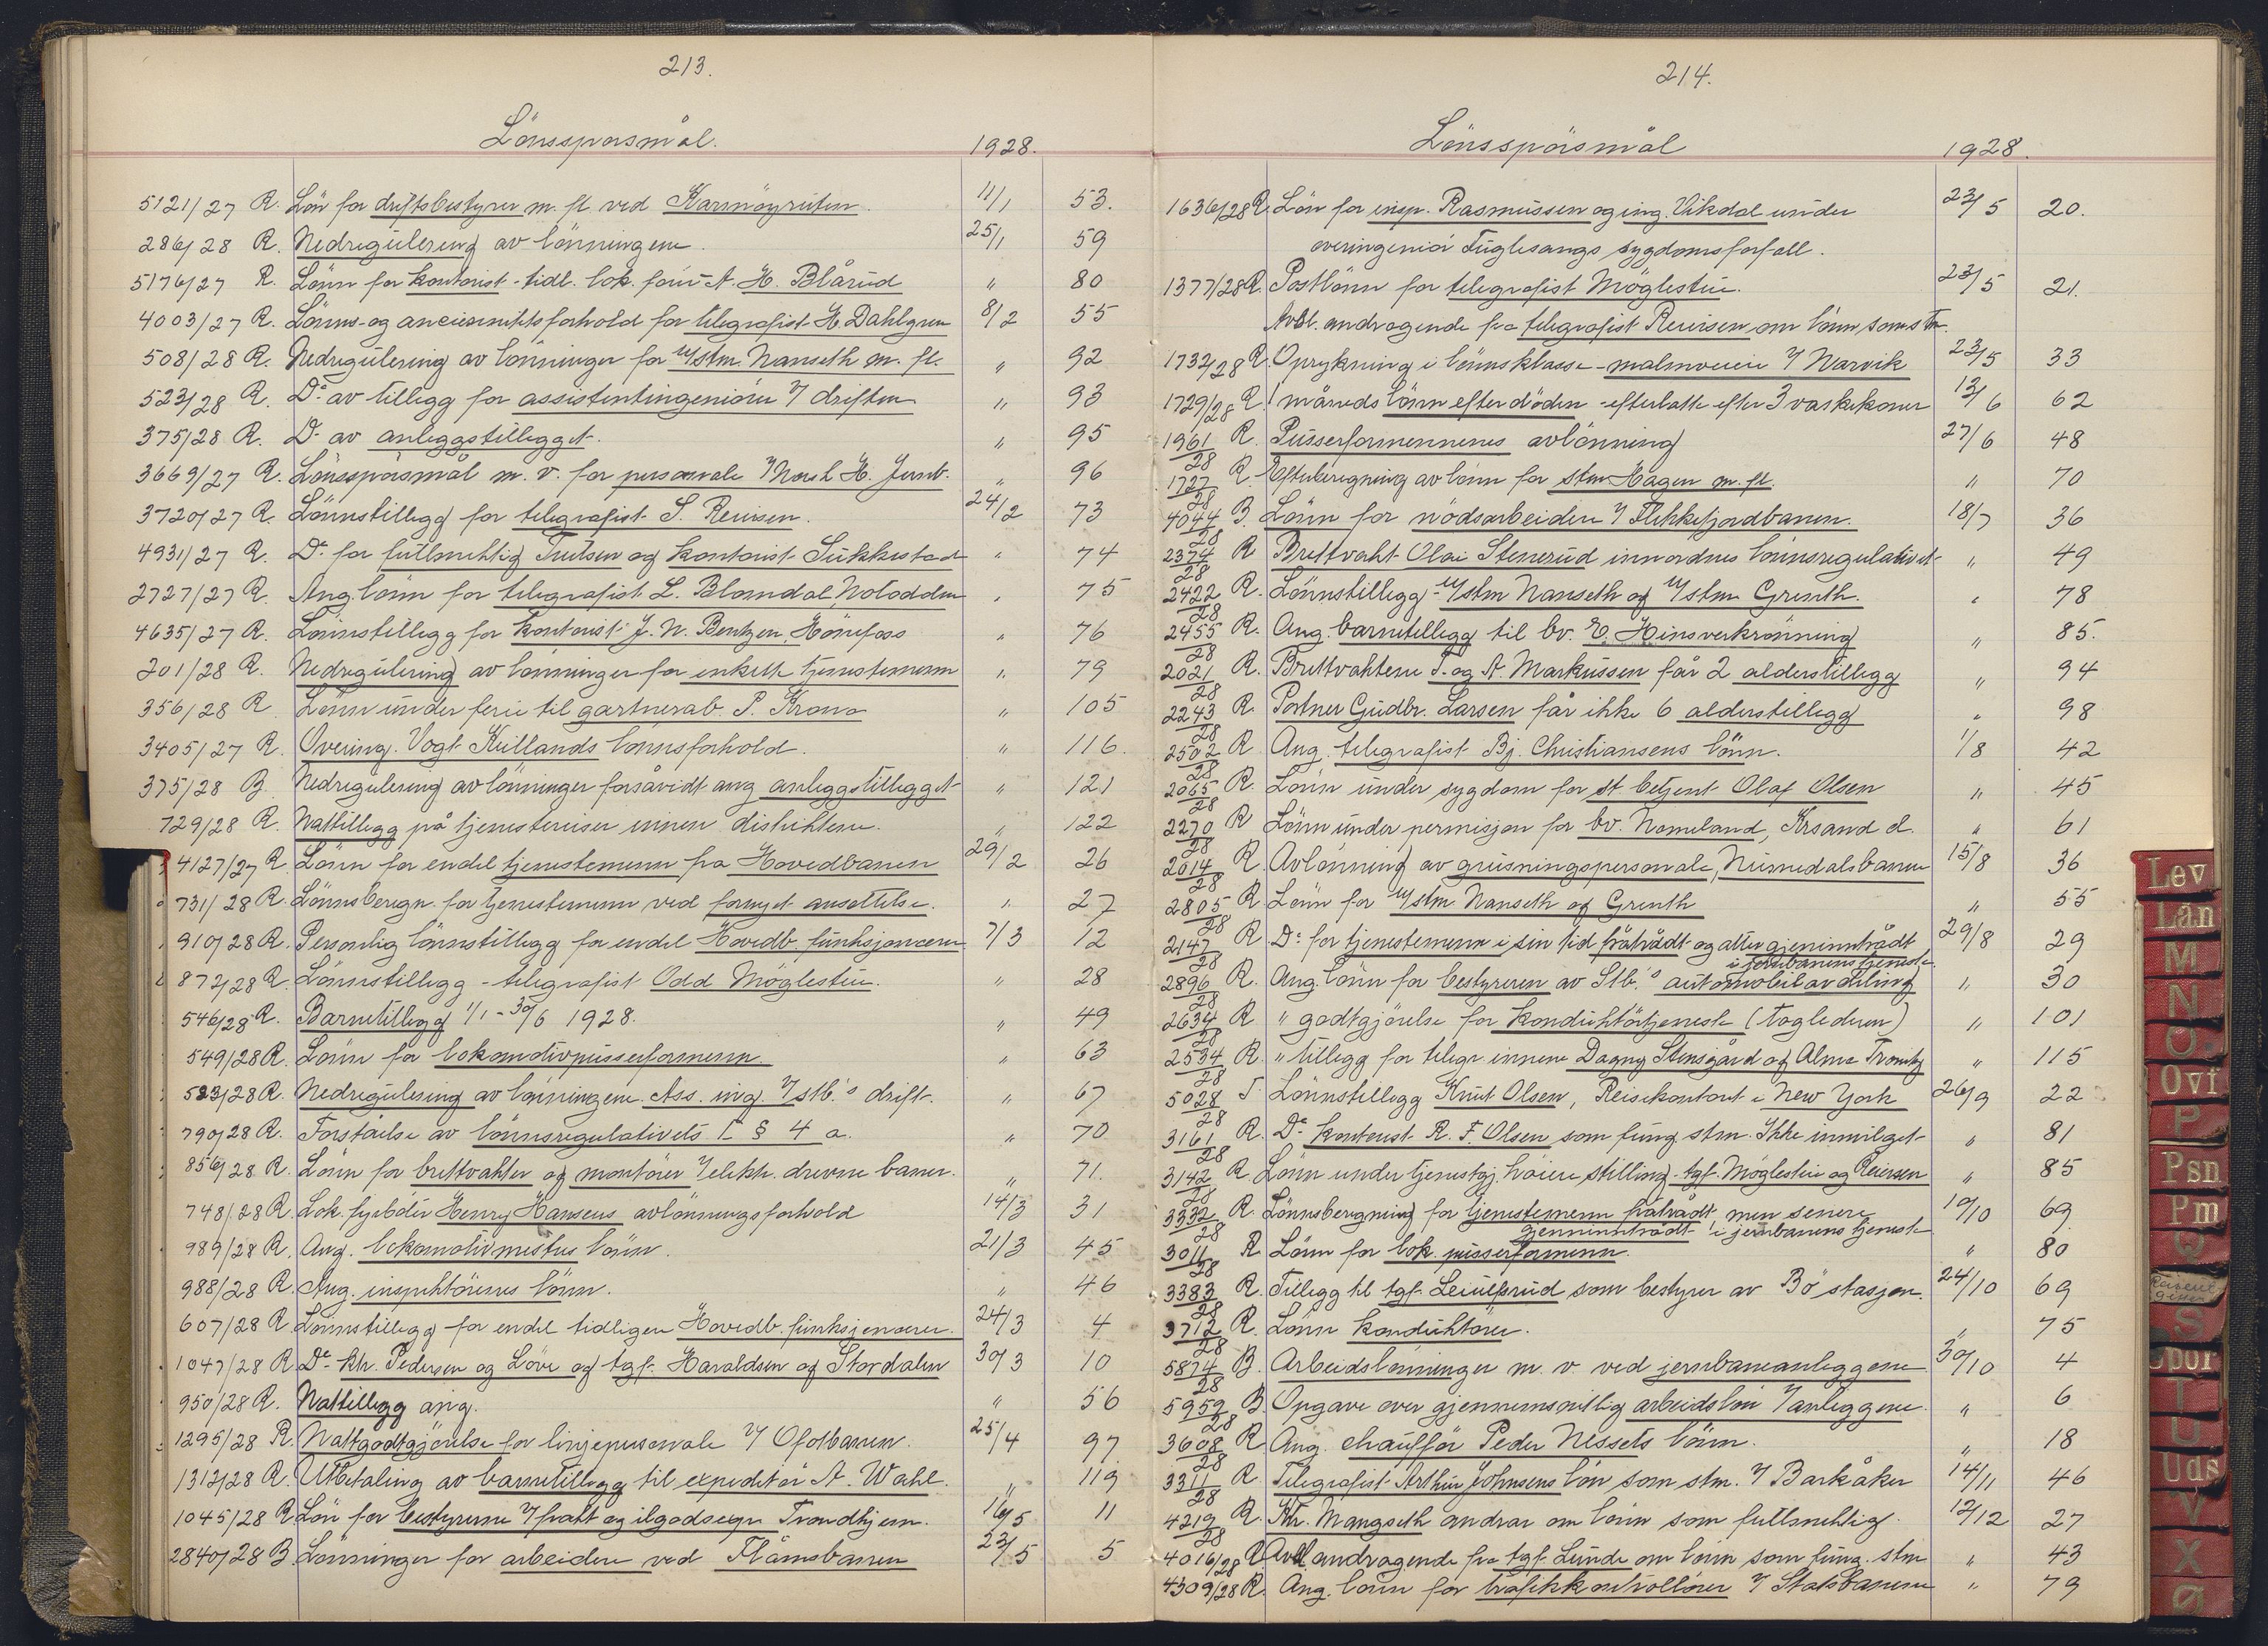 213.
Lönsspörsmål. 1928.
5121/27 R. Lön for driftsbestyrer m. fl. ved Karmöyruten. 11/1 53.
286/28 R. Nedregulering av lönningene. 25/1 59
5176/27 R. Lönn for kontorist - tidl. lok. A. H. Blårud " 80
4003/27 R. Lönns- og anciennitetsforhold for telegrafist H. Dahlgren 8/2 55
508/28 R. Nedregulering av lönninger for u/stm. Nanseth m. fl. " 92
523/28 R. Do av tillegg for assistentingeniörer v/ driften " 93
375/28 R. Do av anleggstillegget. " 95
3669/27 R. Lönsspörsmål m. v. for personale v/ Norsk H. Jernb. " 96
3720/27 R. Lönnstillegg for telegrafist S. Reiersen. 24/2 73
4931/27 R. Do for fullmektig Trulsen og kontorist Sukkestad " 74
2727/27 R. Ang. lönn for telegrafist L. Blomdal, Notodden " 75
4635/27 R. Lönnstillegg for kontorist J. N. Bentzen, Hönefoss " 76
201/28 R. Nedregulering av lönninger for enkelte tjenestemenn " 79
356/28 R. Lönn under ferie til gartnerarb. P. Krona " 105
3405/27 R. Overing. Vogt Kiellands lönnsforhold. " 116.
375/28 B. Nedregulering av lönninger forsåvidt ang anleggstillegget " 121
729/28 R. Nattillegg på tjenestereiser innen distriktene. " 122
4127/27 R. Lönn for endel tjenestemenn fra Hovedbanen 29/2 26
731/28 R. Lönnsberegn. for tjenestemenn ved fornyet ansettelse. " 27
910/28 R. Personlig lönnstillegg for endel Hovedb. funksjonærer 7/3 12
872/28 R. Lönnstillegg - telegrafist Odd Möglestue. " 28
546/28 R. Barnetillegg 1/1 - 30/6 1928. " 49
549/28 R. Lönn for lokomotivpusserformenn " 63
523/28 R. Nedregulering av lönningene. Ass. ing. v/ stb.'s drift. " 67
790/28 R. Forståelse av lönnsregulativets § 4 a. " 70
856/28 R. Lönn for brettvakter og montörer v/ elektr. drevne baner. " 71.
748/28 R. Lok. fyrböter Henry Hansens avlönningsforhold 14/3 31
989/28 R. Ang. lokomotivmestres lönn. 21/3 45
988/28 R. Ang. inspektörenes lönn. " 46
607/28 R. Lönnstillegg for endel tidligere Hovedb. funksjonærer. 24/3 4
1047/28 R. Do - ktr. Pedersen og Löve og tgf. Haraldsen og Stordalen 30/3 10
950/28 R. Nattillegg ang. " 56
1295/28 R. Nattgodtgjörelse for linjepersonale v/ Ofotbanen. 25/4 97
1312/28 R. Utbetaling av barnetillegg til expeditör A. Wahl. " 119
1045/28 R. Lön for bestyrerne v/ frakt og ilgodsexp. Trondhjem. 16/5 11
2840/28 B. Lönninger for arbeidere ved Flåmsbanen 23/5 5
214.
Lönsspörsmål 1928.
1636/28 R. Lön for insp. Rasmussen og ing. Vikdal under 23/5 20.
overingeniör Fuglesangs sygdomsforfall.
1377/28 R. Postlönn for telegrafist Möglestue. 23/5 21.
Avsl. andragende fra telegrafist Reiersen om lönn som stm.
1732/28 R. Oprykning i lönnsklasse - malmveiere v/ Narvik 23/5 33
1729/28 R. 1 måneds lönn efter döden - efterlatte efter 3 vaskekoner 13/6 62
1961/28 R. Pusserformennenes avlönning 27/6 48
1727/28 R. Efterberegning av lönn for stm Hagen m. fl. " 70
4044/28 B. Lönn for nödsarbeidere v/ Flekkefjordbanen. 18/7 36
2374/28 R. Brettvakt Olai Stenerud innordnes lönnsregulativet " 49
2422/28 R. Lönnstillegg - u/stm Nanseth og u/stm Grenth. " 78
2455/28 R. Ang. barnetillegg til bv. E. Hinsverkrönning " 85.
2021/28 R. Brettvaktene T. og A. Markussen får 2 alderstillegg " 94
2243/28 R. Portner Gudbr. Larsen får ikke 6 alderstillegg " 98
2502/28 R. Ang. telegrafist Bj. Christiansens lönn. 1/8 42
2065/28 R. Lönn under sygdom for st betjent Olaf Olsen " 45
2270/28 R. Lönn under permisjon for bv. Nomeland, Krsand d. " 61
2014/28 R. Avlönning av grusningspersonale, Numedalsbanen 15/8 36
2805/28 R. Lönn for u/stm Nanseth og Grenth " 55
2147/28 R. Do for tjenestemenn i sin tid fratrådt og atter gjeninntrådt 29/8 29
i jernbanens tjeneste.
2896/28 R. Ang. lönn for bestyreren av Stb.'s automobilavdeling " 30
2634/28 R. " godtgjörelse for konduktörtjeneste (Togledern) " 101
2534/28 R. " tillegg for telegr. innene Dagny Stensgård og Alma " 115
5028/28 T. Lönnstillegg Knut Olsen, Reisekontoret i New York 26/9 22
3161/28 R. Do kontorist R. F. Olsen som fung. stm. Ikke innvilget " 81
3142/28 R. Lönn under tjenestgj. höiere stilling - tgf. Möglestue og Reiersen " 85
3332/28 R. Lönnsberegning for tjenestemenn fratrådt men senere 10/10 69
gjeninntrådt i jernbanens tjeneste
3011/28 R. Lönn for lok. pusserformenn. " 80
3383/28 R. Tillegg til tgf. Leiulfsrud som bestyrer av Bö stasjon. 24/10 69
3712/28 R. Lönn konduktörer. " 75
5874/28 B. Arbeidslönninger m. v. ved jernbaneanleggene 30/10 4
5959/28 B. Opgave over gjennemsnitlig arbeidslön v/ anleggene. " 6
3608/28 R. Ang. chaufför Peder Nessets lönn. " 18
3311/28 R. Telegrafist Arthur Johnsens lön som stm. v/ Barkåker 14/11 46
4219/28 R. Ktr. Mangseth andrar om lönn som fullmektig. 12/12 27
4016/28 R. Avsl. andragende fra tgf. Lunde om lönn som fung. stm " 43
4309/28 R. Ang. lönn for trafikkontrollörer v/ Statsbanene " 79
Lev
Lån
M
N
O.
Ovf
P
Psn
Pm
Q
S
Spor
T
U
Uds
V
X
Ø